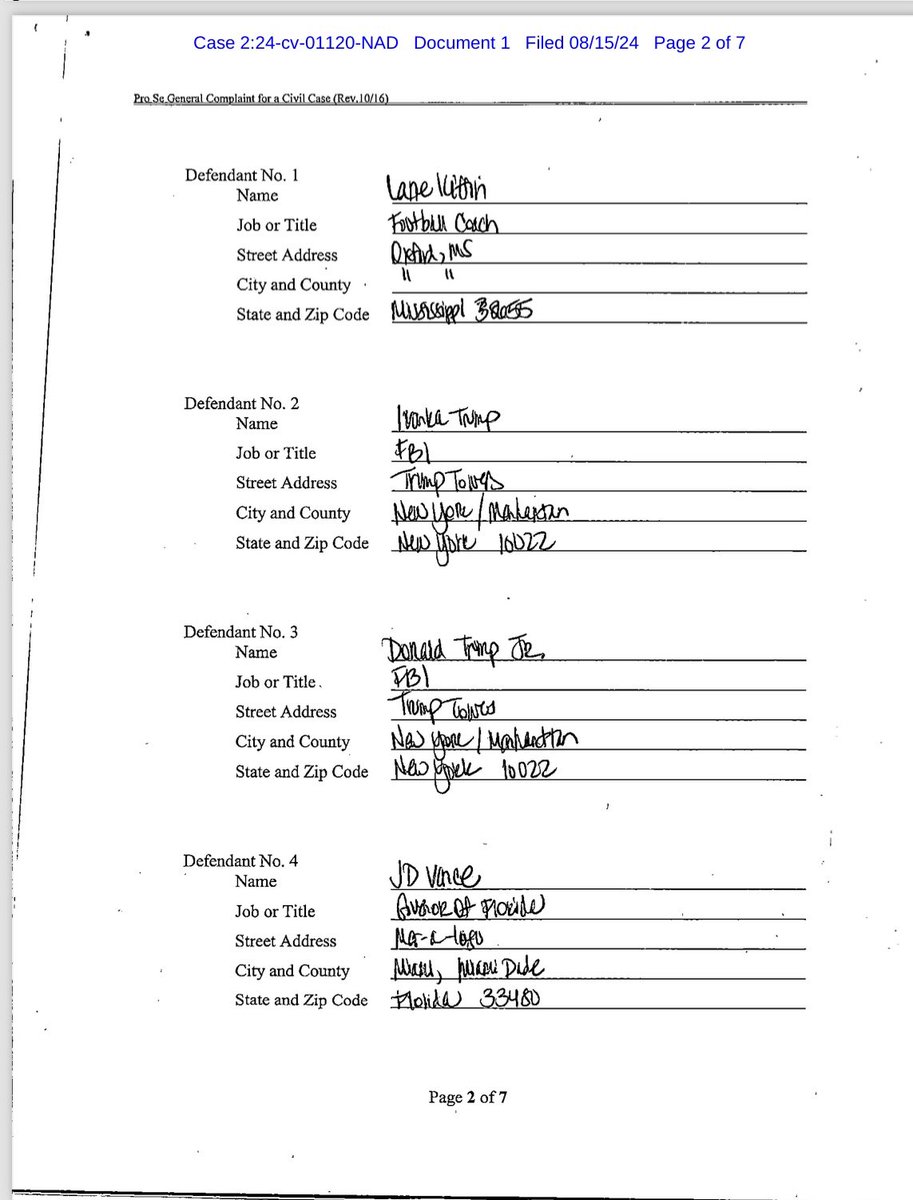 Case 2:24-cv-01120-NAD Document 1 Filed 08/15/24 Page 2 of 7
Pro Se General Complaint for a Civil Case (Rev.10/16)
Defendant No. 1
Name Lane Kiffin
Job or Title Football Coach
Street Address Oxford, MS
City and County " "
State and Zip Code Mississippi 38655
Defendant No. 2
Name Ivanka Trump
Job or Title FBI
Street Address Trump Towers
City and County New York / Manhattan
State and Zip Code New York 10022
Defendant No. 3
Name Donald Trump Jr.
Job or Title FBI
Street Address Trump Towers
City and County New York / Manhattan
State and Zip Code New York 10022
Defendant No. 4
Name JD Vance
Job or Title of Florida
Street Address Mar-a-lago
City and County Miami, Miami Dade
State and Zip Code Florida 33480
Page 2 of 7